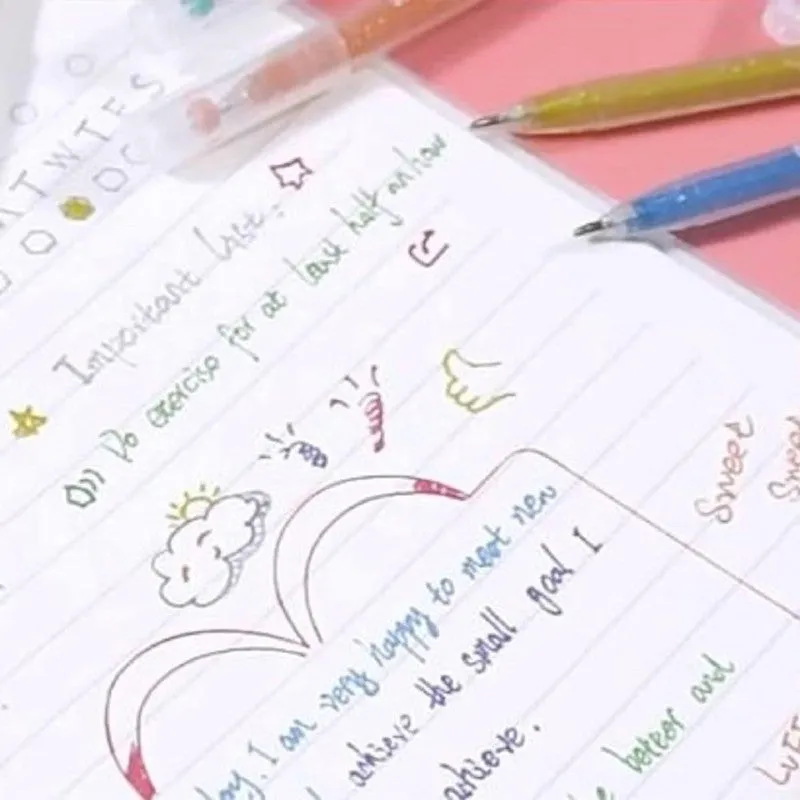 MTWTFS
Important list:
Do exercise for at least half an hour
Sweet
Sweet
I am very happy to meet new
achieve the small goal I
achieve.
better and